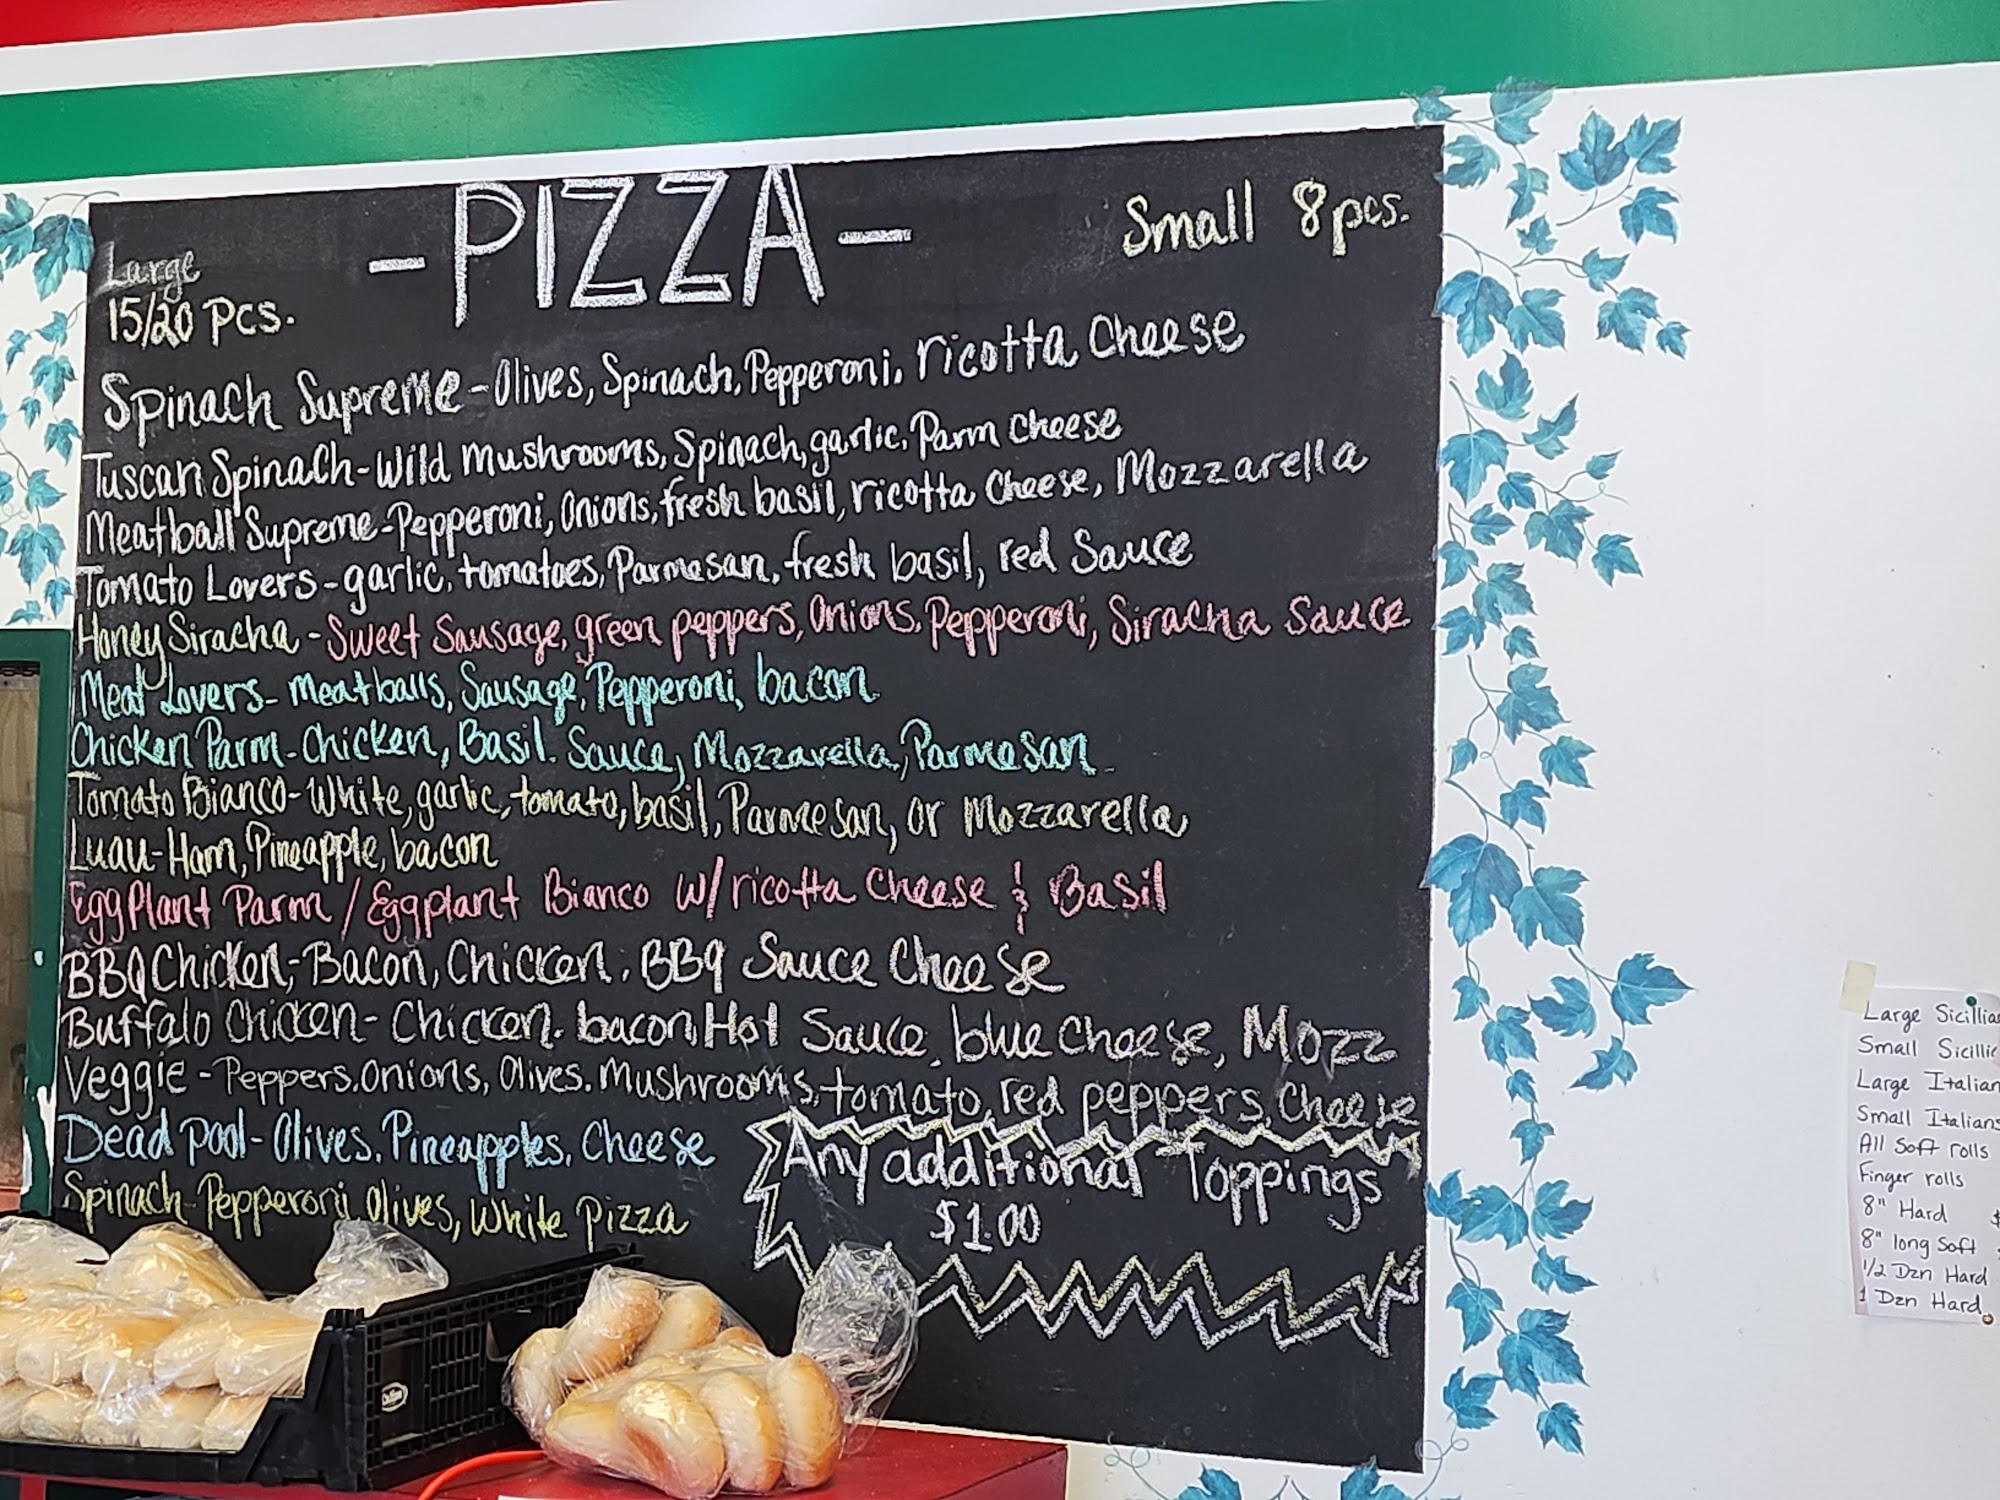 -PIZZA-
Large
15/20 pcs.
Small 8pcs.
Spinach Supreme-Olives, Spinach, Pepperoni, ricotta cheese
Tuscan Spinach-Wild mushrooms, Spinach, garlic, Parm cheese
Meatball Supreme-Pepperoni, Onions, fresh basil, ricotta cheese, Mozzarella
Tomato Lovers-garlic, tomatoes, Parmesan, fresh basil, red Sauce
Honey Siracha-Sweet Sausage, green peppers, Onions, Pepperoni, Siracha Sauce
Meat Lovers-meatballs, Sausage, Pepperoni, bacon
Chicken Parm-Chicken, Basil. Sauce, Mozzarella, Parmesan
Tomato Bianco-White, garlic, tomato, basil, Parmesan, or Mozzarella
Luau-Ham, Pineapple, bacon
EggPlant Parm / Eggplant Bianco w/ricotta cheese & Basil
BBQ Chicken,-Bacon, Chicken, BBq Sauce cheese
Buffalo Chicken-Chicken. bacon, Hot Sauce, blue cheese, Mozz
Veggie-Peppers. Onions, Olives. Mushrooms, tomato, red peppers, cheese
Dead pool-Olives. Pineapples, Cheese
Spinach-Pepperoni, Olives, White pizza
Any additional Toppings
$1.00
Large
Small
Large Italian
Small Italians
All Soft rolls
Finger rolls
8" Hard
8" long Soft
1/2 Dzn Hard
1 Dzn Hard